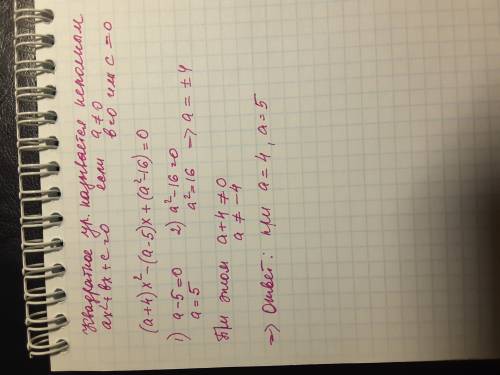 Квадратное ур. называется неполным
ax²+bx+c=0 если a≠0
b=0 или c=0
(a+4)x²-(a-5)x+(a²-16)=0
1) a-5=0 2) a²-16=0
a=5 a²=16 => a=±4
При этом a+4≠0
a≠-4
=> Ответ: при a=4, a=5